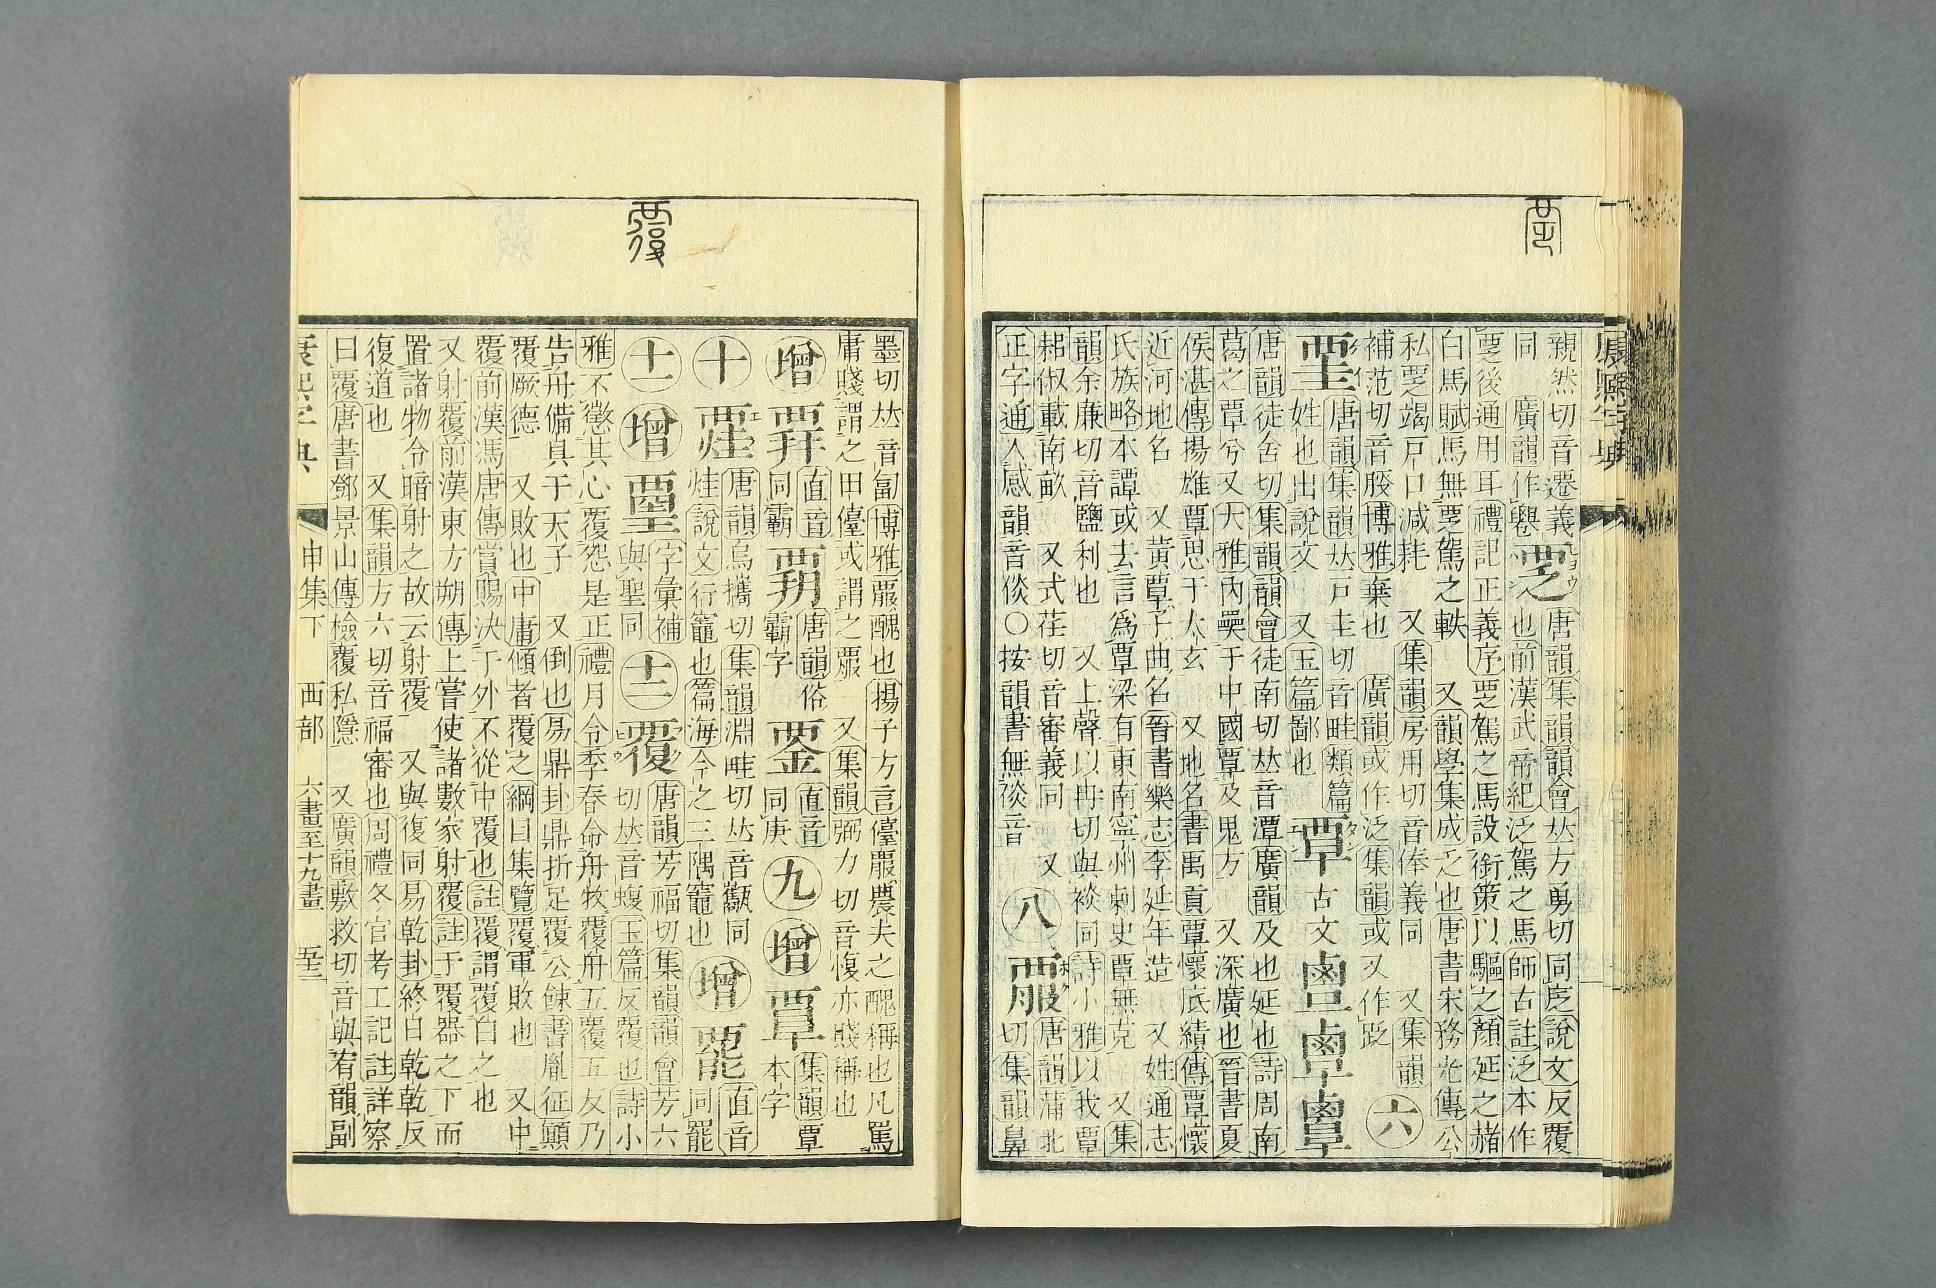 親然切音遷義同 廣韻作䙴 覂 唐韻集韻韻會𠀤方勇切同𠬍說文反覆
也前漢武帝紀泛駕之馬師古註泛本作
覂後通用耳禮記正義序覂駕之馬設銜策以驅之顏延之赭
白馬賦馬無覂駕之軼 又韻學集成乏也唐書宋務光傳公
私覂竭戸口減耗 又集韻房用切音俸義同 又集韻
補范切音䏰博雅棄也 廣韻或作泛集韻或又作𧿨 六
覀圭 唐韻集韻𠀤戸圭切音畦類篇
姓也出說文 又玉篇鄙也 覃 古文
唐韻徒含切集韻韻會徒南切𠀤音潭廣韻及也延也詩周南
葛之覃兮又大雅內奰于中國覃及鬼方 又深廣也晉書夏
侯湛傳揚雄覃思于太玄 又地名書禹貢覃懷厎績傳覃懷
近河地名 又黃覃子曲名晉書樂志李延年造 又姓通志
氏族略本譚或去言爲覃梁有東南寧州刺史覃無克 又集
韻余廉切音鹽利也 又上聲以冉切與剡同詩小雅以我覃
耜俶載南畝 又式荏切音審義同 又
正字通入感韻音倓○按韻書無倓音
八 覀服 唐韻蒲北
切集韻鼻
墨切𠀤音匐博雅覀服醜也揚子方言儓覀服農夫之醜稱也凡罵
庸賤謂之田儓或謂之覀服 又集韻弼力切音愎亦賤稱也
增 直音
同霸 唐韻俗
霸字 直音
同庚 九 增 覃 集韻覃
本字
十 覀圭 唐韻烏攜切集韻淵畦切𠀤音𤬛同
烓說文行竈也篇海今之三隅竈也 增 直音
同罷
十一 增 字彙補
與聖同 十二 覆 唐韻芳福切集韻韻會芳六
切𠀤音蝮玉篇反覆也詩小
雅不懲其心覆怨是正禮月令季春命舟牧覆舟五覆五反乃
告舟備具于天子 又倒也易鼎卦鼎折足覆公餗書胤征顚
覆厥德 又敗也中庸傾者覆之綱目集覽覆軍敗也 又中
覆前漢馮唐傳賞賜決于外不從中覆也註覆謂覆白之也
又射覆前漢東方朔傳上嘗使諸數家射覆註于覆器之下而
置諸物令暗射之故云射覆 又與復同易乾卦終日乾乾反
復道也 又集韻方六切音福審也周禮冬官考工記註詳察
曰覆唐書鄧景山傳檢覆私隱 又廣韻敷救切音與宥韻副
康熙字典 申集下 西部 六畫至十九畫 五十二